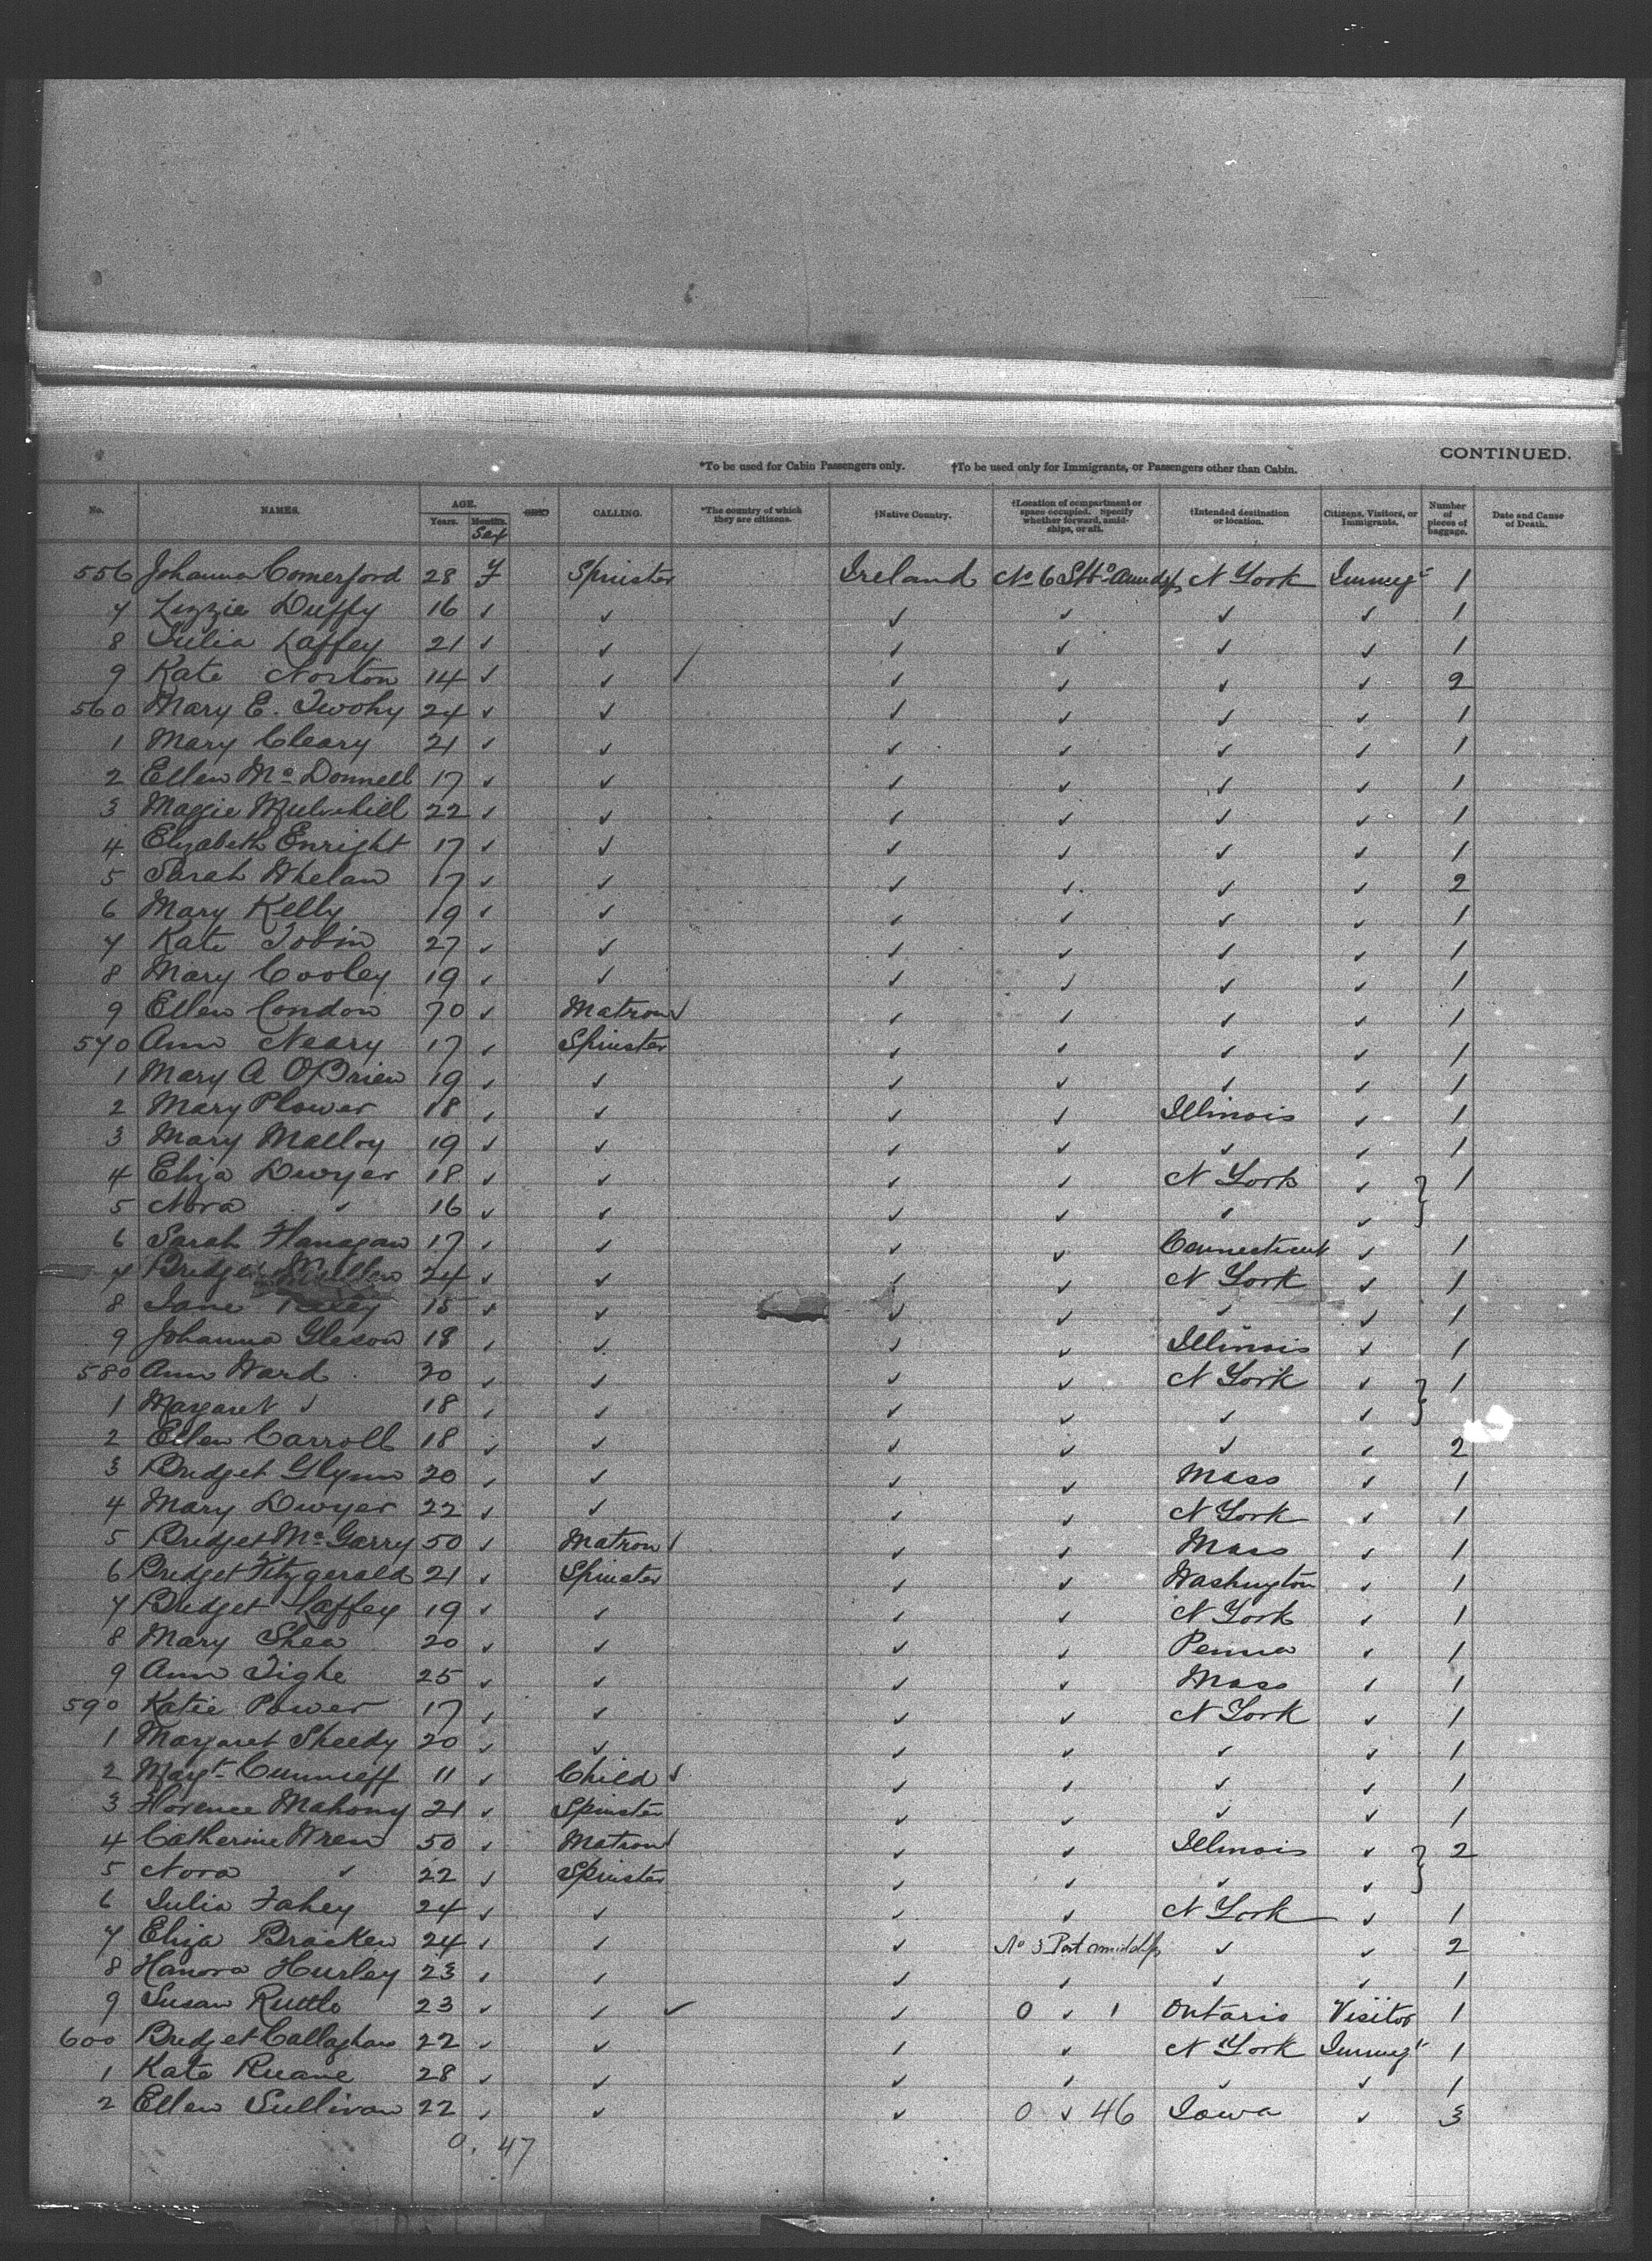 CONTINUED.
*To be used for Cabin Passengers only. †To be used only for Immigrants, or Passengers other than Cabin.
No. NAMES. AGE. Years. Months. Sex CALLING. *The country of which they are citizens. †Native Country. †Location of compartment or space occupied. Specify whether forward, amidships, or aft. †Intended destination or location. Citizens, Visitors, or Immigrants. Number of pieces of baggage. Date and Cause of Death.
556 Johanna Comerford 28 F Spinster Ireland No 6 N York Immigt 1
7 Lizzie Duffy 16 ✓ ✓ ✓ ✓ ✓ ✓ 1
8 Julia Laffey 21 ✓ ✓ ✓ ✓ ✓ ✓ 1
9 Kate Norton 14 ✓ ✓ / ✓ ✓ ✓ ✓ 2
560 Mary E. Twohy 24 ✓ ✓ ✓ ✓ ✓ ✓ 1
1 Mary Cleary 21 ✓ ✓ ✓ ✓ ✓ ✓ 1
2 Ellen Mc Donnell 17 ✓ ✓ ✓ ✓ ✓ ✓ 1
3 Maggie Mulvihill 22 ✓ ✓ ✓ ✓ ✓ ✓ 1
4 Elizabeth Enright 17 ✓ ✓ ✓ ✓ ✓ ✓ 1
5 Sarah Whelan 17 ✓ ✓ ✓ ✓ ✓ ✓ 2
6 Mary Kelly 19 ✓ ✓ ✓ ✓ ✓ ✓ 1
7 Kate Tobin 27 ✓ ✓ ✓ ✓ ✓ ✓ 1
8 Mary Cooley 19 ✓ ✓ ✓ ✓ ✓ ✓ 1
9 Ellen Condon 70 ✓ Matron ✓ ✓ ✓ ✓ ✓ 1
570 Ann Neary 17 ✓ Spinster ✓ ✓ ✓ ✓ 1
1 Mary A OBrien 19 ✓ ✓ ✓ ✓ ✓ ✓ 1
2 Mary Power 18 ✓ ✓ ✓ ✓ Illinois ✓ 1
3 Mary Malloy 19 ✓ ✓ ✓ ✓ ✓ ✓ 1
4 Eliza Dwyer 18 ✓ ✓ ✓ ✓ N York ✓ } 1
5 Nora ✓ 16 ✓ ✓ ✓ ✓ ✓ ✓
6 Sarah Flanagan 17 ✓ ✓ ✓ ✓ Connecticut ✓ 1
7 Bridget Mullen 24 ✓ ✓ ✓ ✓ N York ✓ 1
8 Jane 15 ✓ ✓ ✓ ✓ ✓ ✓ 1
9 Johanna Gleson 18 ✓ ✓ ✓ ✓ Illinois ✓ 1
580 Ann Ward 30 ✓ ✓ ✓ ✓ N York ✓ } 1
1 Margaret ✓ 18 ✓ ✓ ✓ ✓ ✓ ✓
2 Ellen Carroll 18 ✓ ✓ ✓ ✓ ✓ ✓ 2
3 Bridget Glynn 20 ✓ ✓ ✓ ✓ Mass ✓ 1
4 Mary Dwyer 22 ✓ ✓ ✓ ✓ N York ✓ 1
5 Bridget Mc Garry 50 ✓ Matron ✓ ✓ ✓ Mass ✓ 1
6 Bridget Fitzgerald 21 ✓ Spinster ✓ ✓ Washington ✓ 1
7 Bridget Laffey 19 ✓ ✓ ✓ ✓ N York ✓ 1
8 Mary Shea 20 ✓ ✓ ✓ ✓ Penna ✓ 1
9 Ann Tighe 25 ✓ ✓ ✓ ✓ Mass ✓ 1
590 Katie Power 17 ✓ ✓ ✓ ✓ N York ✓ 1
1 Margaret Sheedy 20 ✓ ✓ ✓ ✓ ✓ ✓ 1
2 Margt 11 ✓ Child ✓ ✓ ✓ ✓ ✓ 1
3 Florence Mahony 21 ✓ Spinster ✓ ✓ ✓ ✓ 1
4 Catherine Wren 50 ✓ Matron ✓ ✓ ✓ Illinois ✓ } 2
5 Nora ✓ 22 ✓ Spinster ✓ ✓ ✓ ✓
6 Julia Fahey 24 ✓ ✓ ✓ ✓ N York ✓ 1
7 Eliza Bracken 24 ✓ ✓ ✓ No 5 Port amidships ✓ ✓ 2
8 Hanora Hurley 23 ✓ ✓ ✓ ✓ ✓ ✓ 1
9 Susan Ruttle 23 ✓ ✓ ✓ ✓ 0 ✓ 1 Ontario Visitor 1
600 Bridget Callaghan 22 ✓ ✓ ✓ ✓ N York Immigt 1
1 Kate Ruane 28 ✓ ✓ ✓ ✓ ✓ ✓ 1
2 Ellen Sullivan 22 ✓ ✓ ✓ 0 ✓ 46 Iowa ✓ 3
0. 47